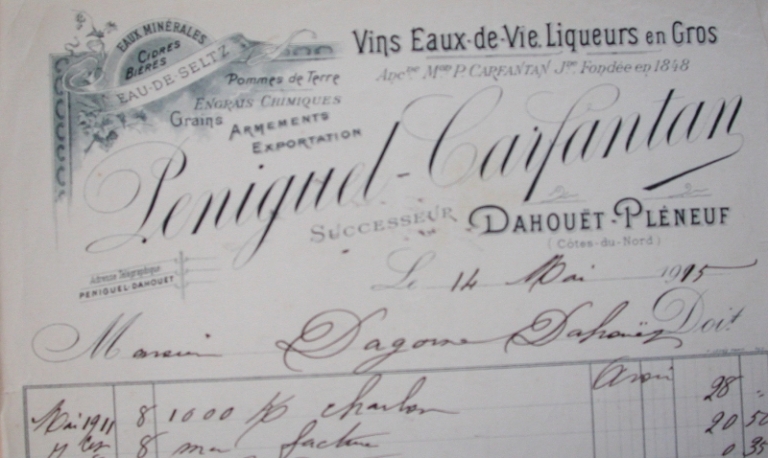 Vins Eaux-de-Vie. Liqueurs en Gros
Ancne Mson P. CARFANTAN Jne Fondée en 1848
EAUX MINÉRALES
CIDRES
BIÈRES
EAU-DE-SELTZ
Pommes de Terre
ENGRAIS CHIMIQUES
Grains
ARMEMENTS
EXPORTATION
Peniguel-Carfantan
SUCCESSEUR
DAHOUËT-PLÉNEUF
(Côtes-du-Nord)
Adresse Télégraphique
PENIGUEL-DAHOUËT
Le 14 Mai 1915
Monsieur Dagorne Dahouët Doit
Mai 1911 8 1000 Ko charbon 28 "
8 ma facture 20 50
0 35